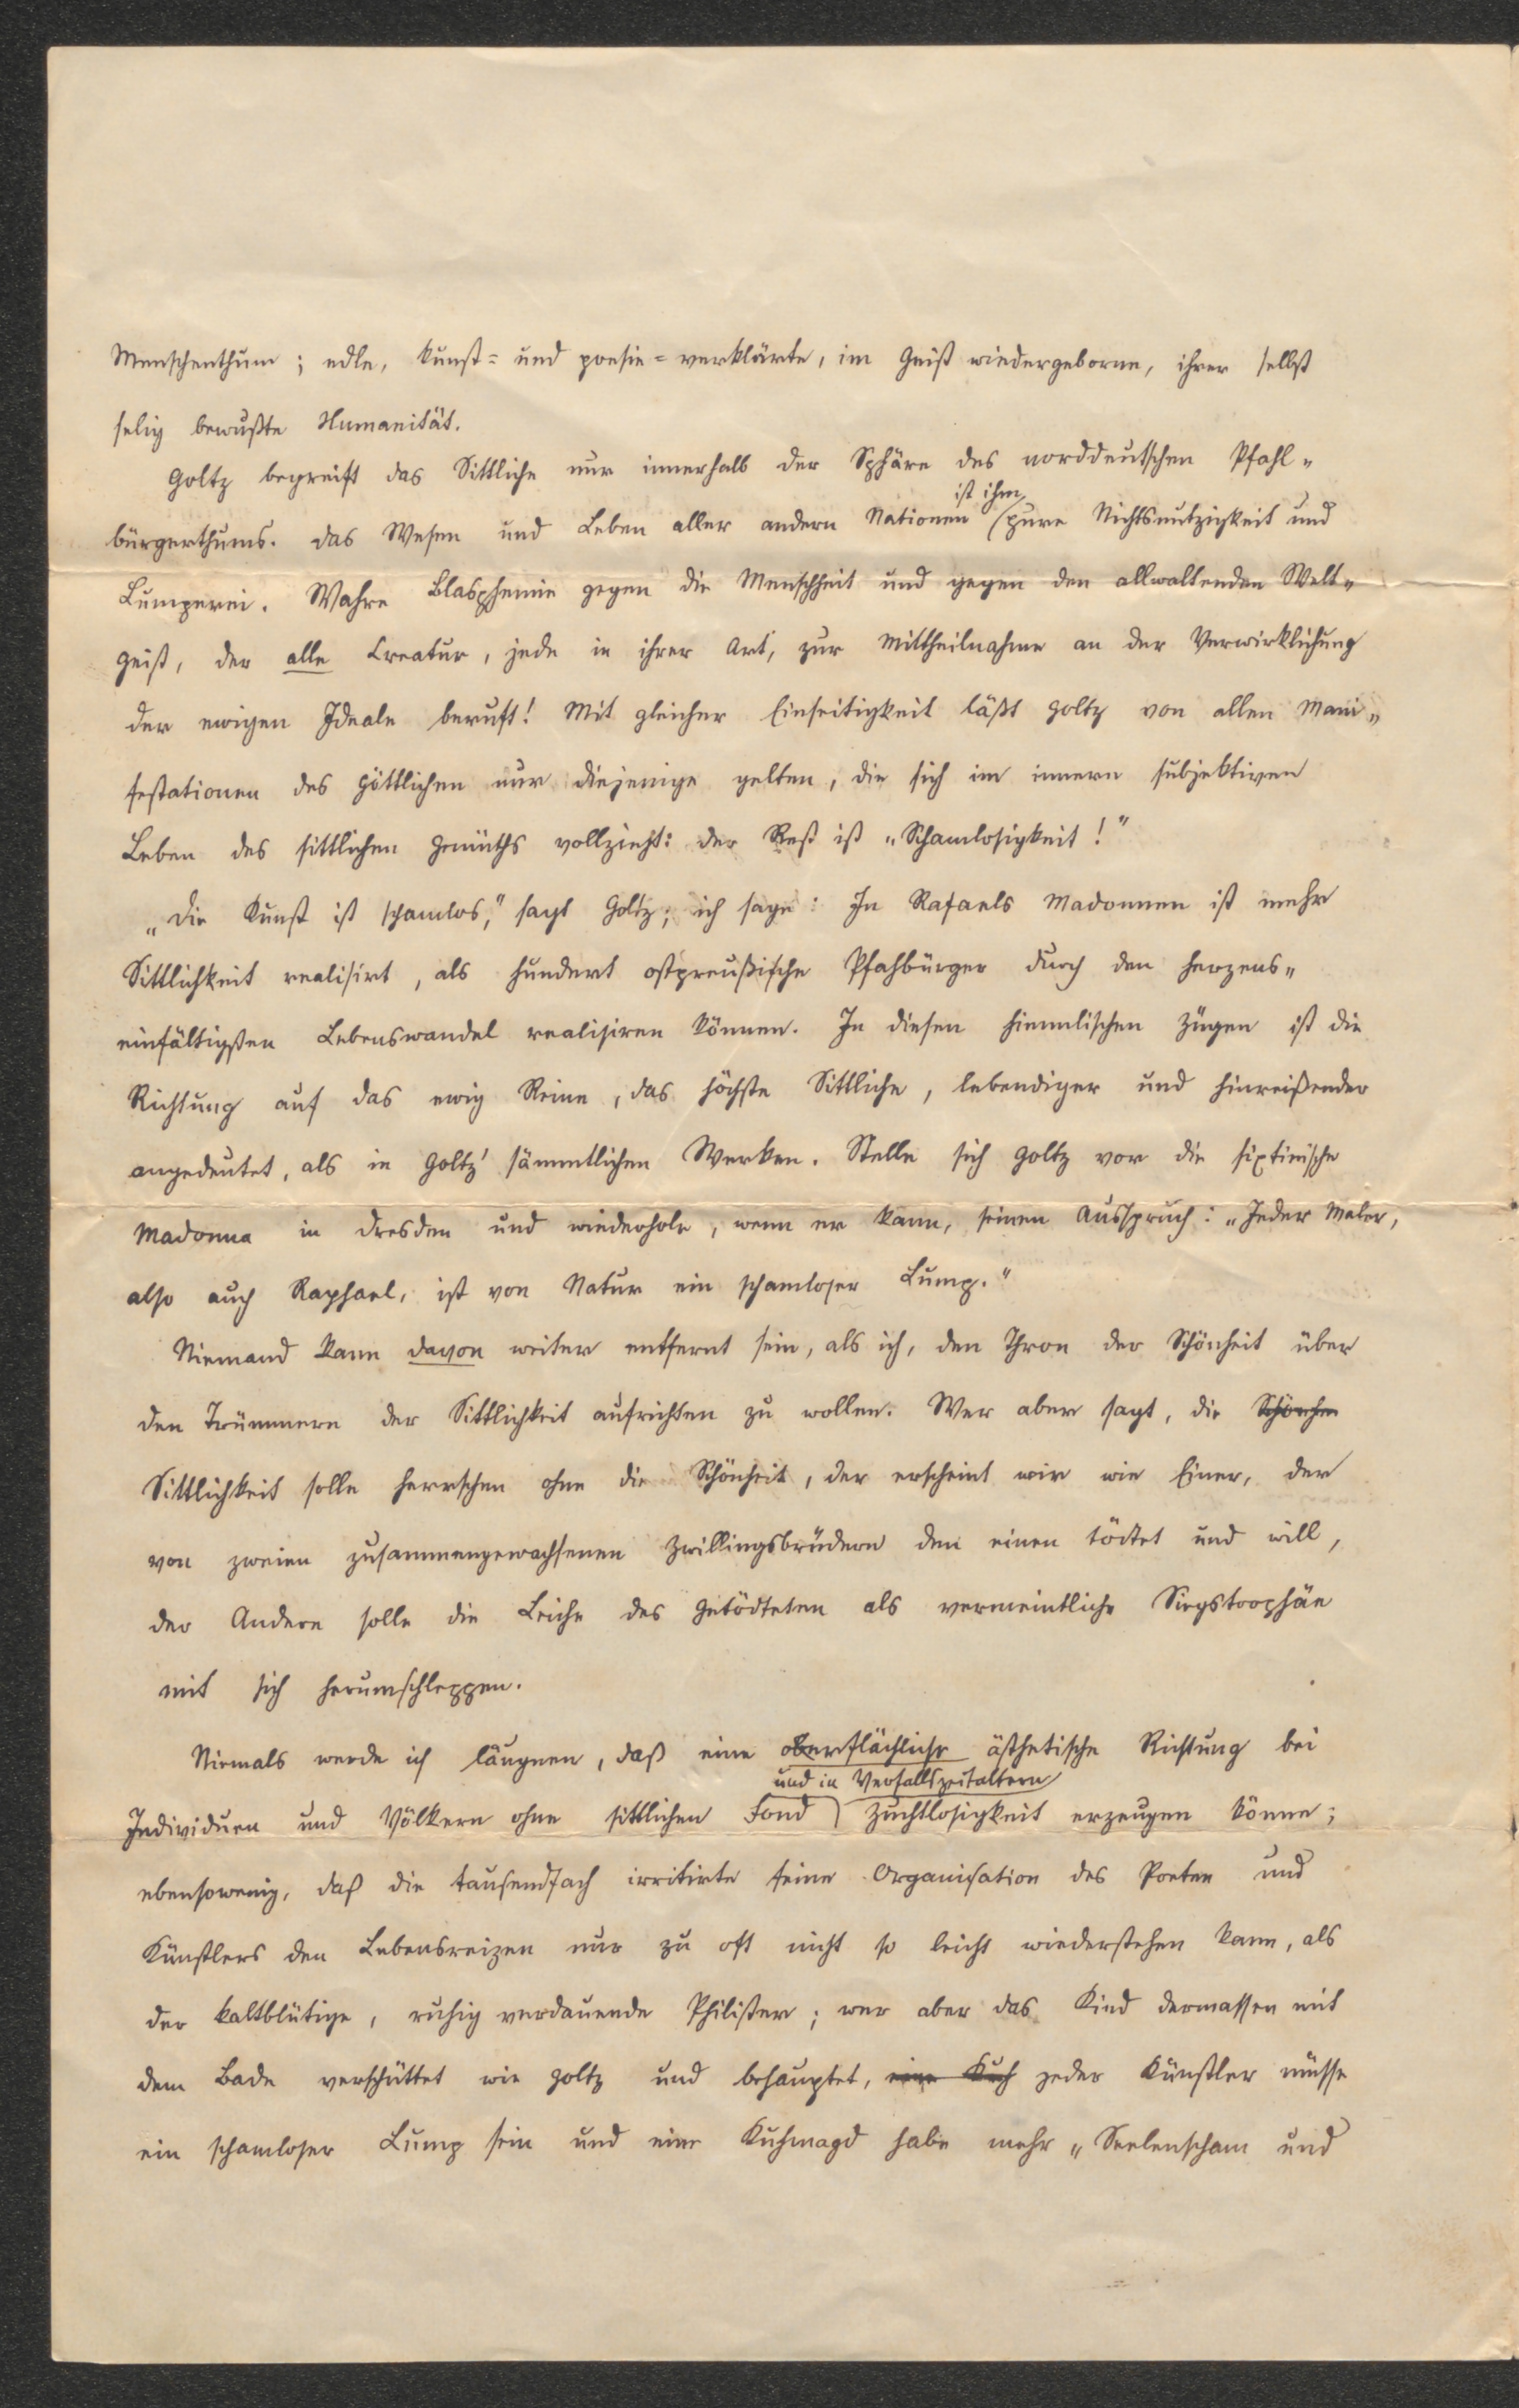 Menschenthum; edle, kunst= und poesie=verklärte, im Geist wiedergeborne, ihrer selbst
selig bewußte Humanität.
Goltz begreift das Sittliche nur innerhalb der Sphäre des norddeutschen Pfahl„
ist ihm
bürgerthums. Das Wesen und Leben aller andern Nationen (pure Nichtsnutzigkeit und
Lumperei. Wahre Blasphemie gegen die Menschheit und gegen den allwaltenden Welt„
geist, der alle Creatur, jede in ihrer Art, zur Mittheilnahme an der Verwirklichung
der ewigen Ideale beruft! Mit gleicher Einseitigkeit läßt Goltz von allen Mani„
festationen des Göttlichen nur diejenige gelten, die sich im innern subjektiven
Leben des sittlichen Gemüths vollzieht: der Rest ist „Schamlosigkeit!"
„Die Kunst ist schamlos," sagt Goltz; ich sage: In Rafaels Madonnen ist mehr
Sittlichkeit realisirt, als hundert ostpreußische Pfahbürger durch den herzens„
einfältigsten Lebenswandel realisiren können. In diesen himmlischen Zügen ist die
Richtung auf das ewig Reine, das höchste Sittliche, lebendiger und hinreißender
angedeutet, als in Goltz' sämmtlichen Werken. Stelle sich Goltz vor die sixtinische
Madonna in Dresden und wiederhole, wenn er kann, seinen Ausspruch: „Jeder Maler,
also auch Raphael, ist von Natur ein schamloser Lump."
Niemand kann davon weiter entfernt sein, als ich, den Thron der Schönheit über
den Trümmern der Sittlichkeit aufrichten zu wollen. Wer aber sagt, die Schönhe
Sittlichkeit solle herrschen ohne die Schönheit, der erscheint mir wie Einer, der
von zweien zusammengewachsenen Zwillingsbrüdern den einen tödtet und will,
der Andere solle die Leiche des Getödteten als vermeintliche Siegstrophäe
mit sich herumschleppen.
Niemals werde ich läugnen, daß eine oberflächliche ästhetische Richtung bei
und in Verfallszeitaltern
Individuen und Völkern ohne sittlichen Fond Zuchtlosigkeit erzeugen könne;
ebensowenig, daß die tausendfach irritirte feine Organisation des Poeten und
Künstlers den Lebensreizen nur zu oft nicht so leicht wiederstehen kann, als
der kaltblütige, ruhig verdauende Philister; wer aber das Kind dermassen mit
dem Bade verschüttet wie Goltz und behauptet, eine Kuh jeder Künstler müsse
ein schamloser Lump sein und eine Kuhmagd habe mehr „Seelenscham und